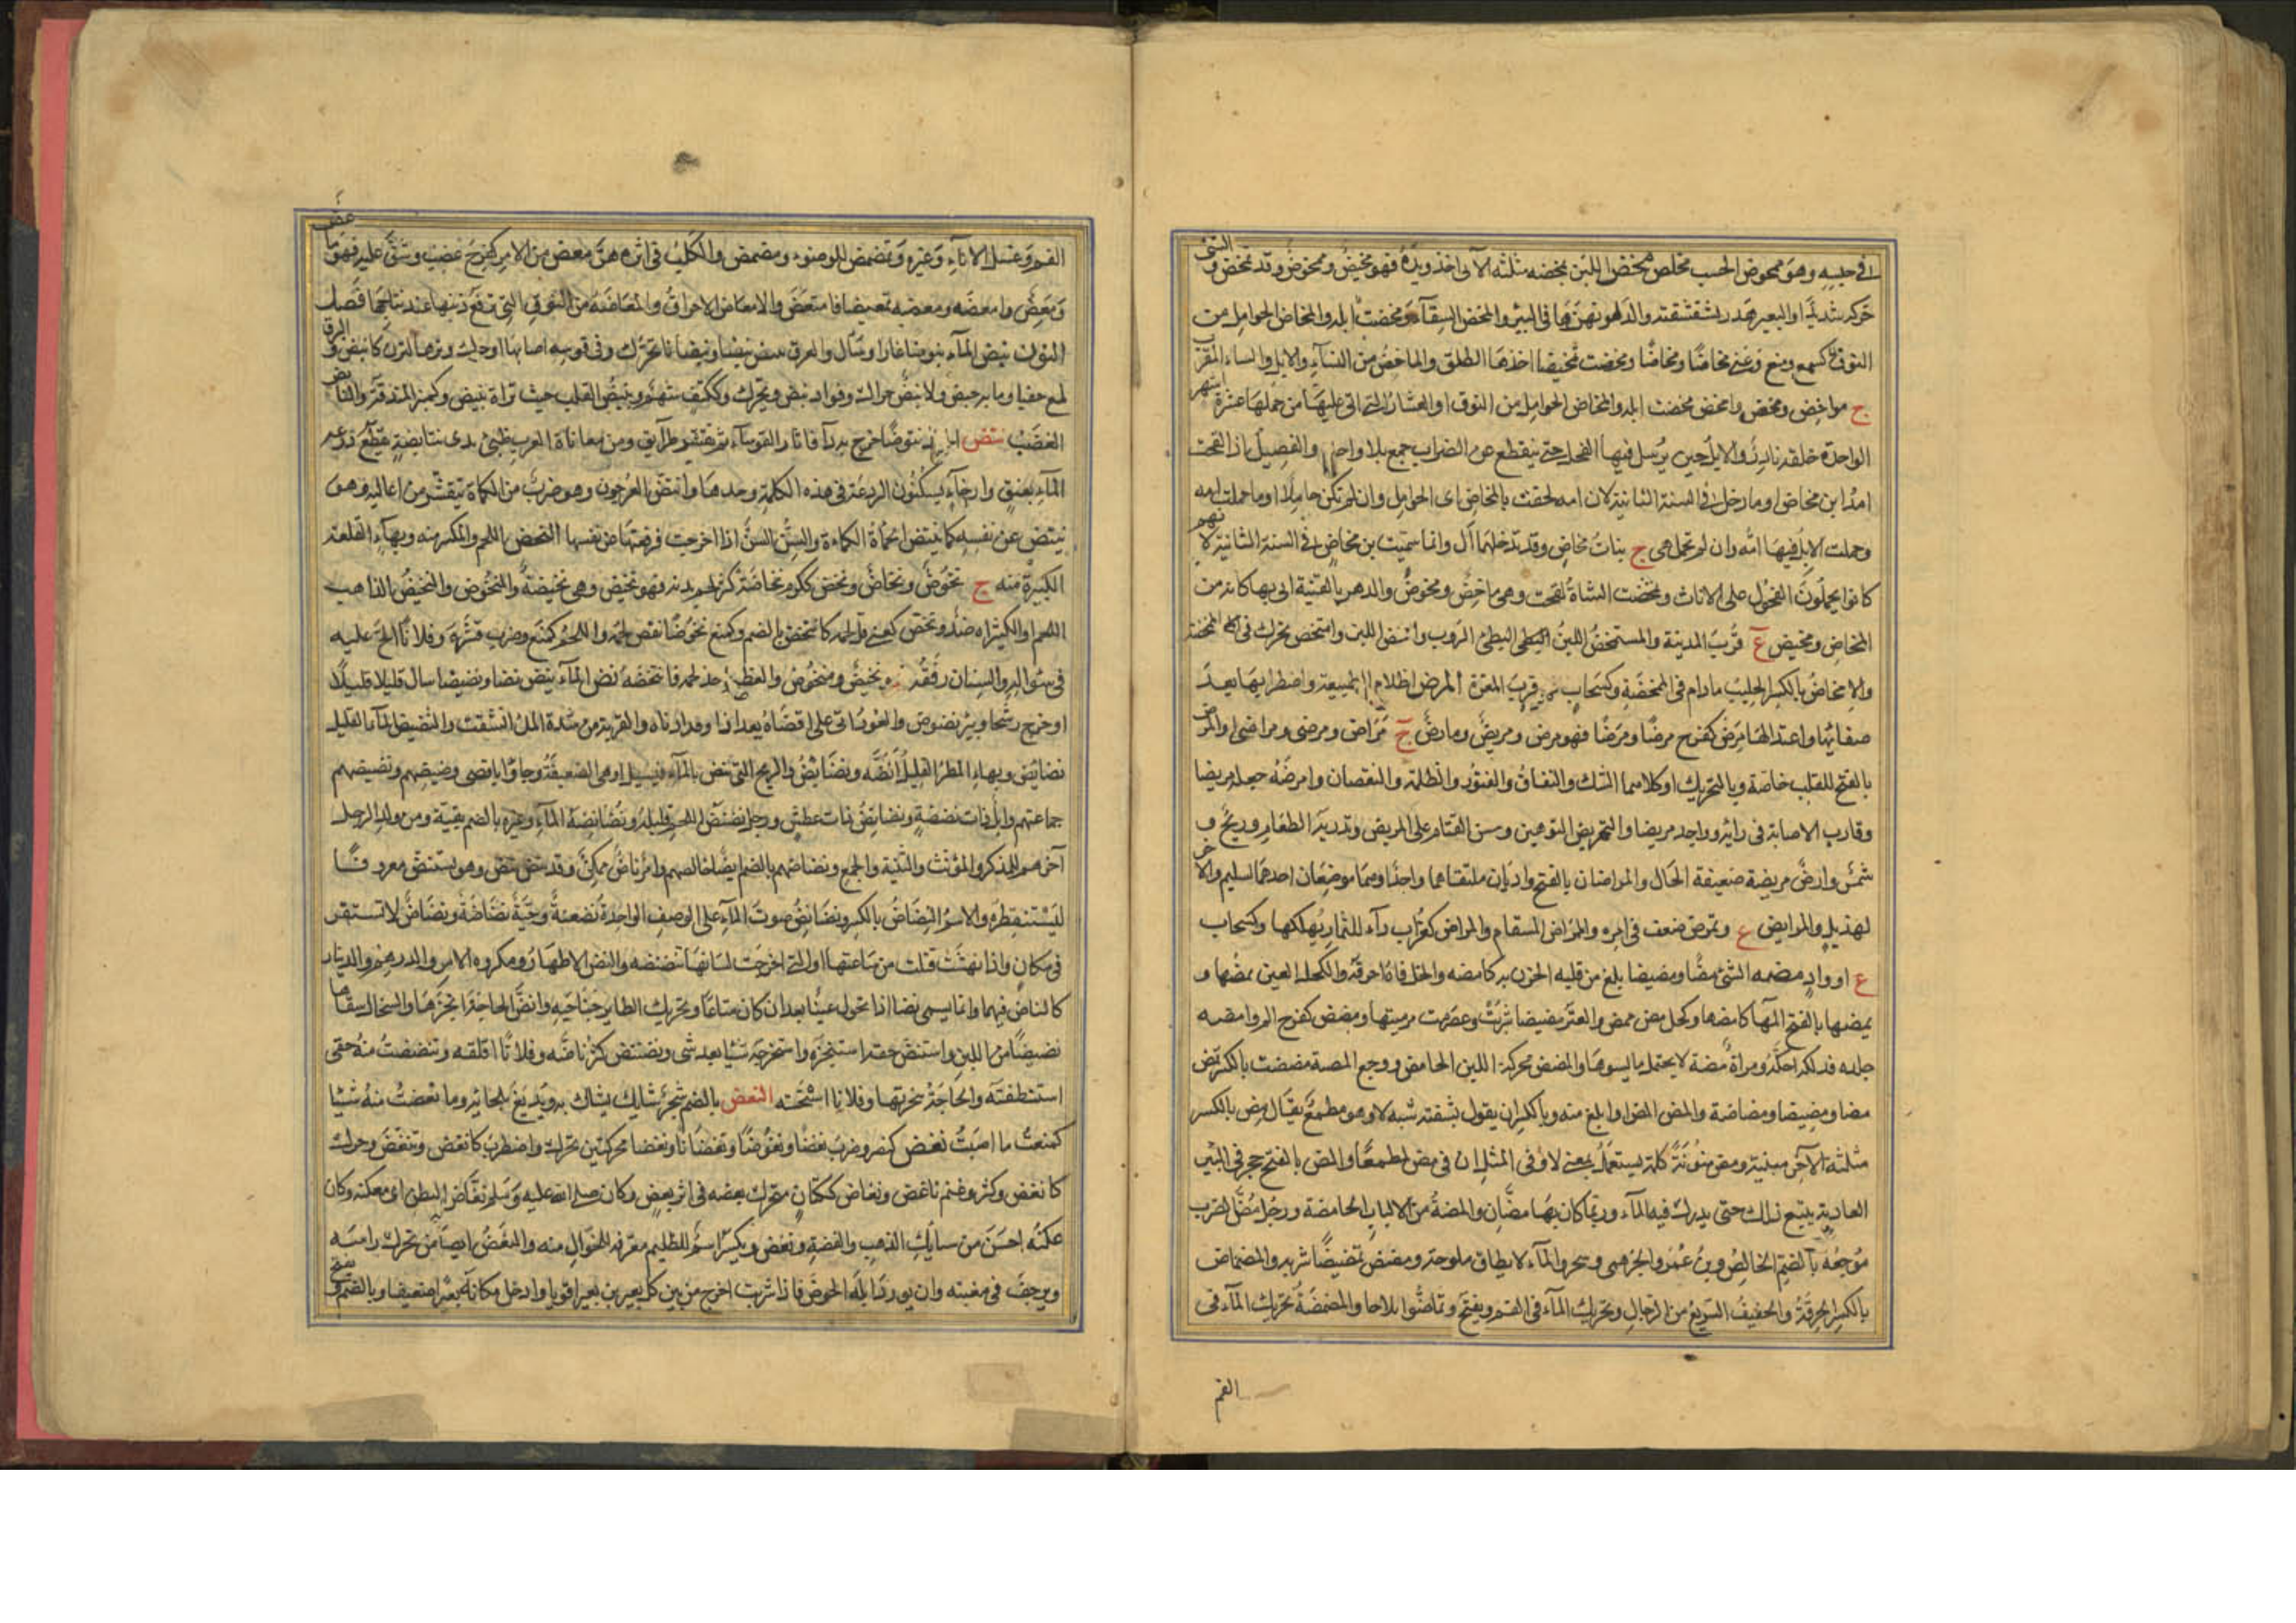 في حبسه وهو ممحوض الحسب مخلص مخض اللبن يمخضه مثلثة الآتي اخذ زبده فهو مخيض وممخوض وقد تمخض و الشئ
حركه شديدا والبعير هدر بشقشقته والدلو نهز بها في البئر والمخض السقاء وتمخضت ابله والمخاض الحوامل من
النوق كسمع ومنع وعني مخاضا ومخاضا ومخضت تمخيضا اخذها الطلق والماخض من النساء والابل والشاء المقرب
ج مواخض ومخض وامخض مخضت ابله والمخاض الحوامل من النوق او العشار التي اتى عليها من حملها عشرة اشهر
الواحدة خلفة نادر والابل حين يرسل فيها الفحل حتى ينقطع عن الضراب جمع بلا واحد والفصيل اذا لقحت
امه ابن مخاض او ما دخل في السنة الثانية لان امه لحقت بالمخاض اي الحوامل وان لم تكن حاملا او ما حملت امه
وحملت الابل فيها امه وان لم تحمل هي ج بنات مخاض وقد تدخلهما أل وانما سميت بن مخاض في السنة الثانية لانهم
كانوا يحملون الفحول على الاناث وتمخضت الشاة لقحت وهي ماخض ومخوض والدهر بالفتنة اتى بها كانه من
المخاض ومخيض ع قرب المدينة والمستمخض اللبن البطئ البطئ الروب وامتخض تحرك في الممخضة
والامخاض بالكسر الحليب ما دام في الممخضة وكسحاب قرب المعرة المرض اظلام الطبيعة واضطرابها بعد
صفائها واعتدالها مرض كفرح مرضا ومرضا فهو مرض ومريض ومارض ج مراض ومرضى ومراضى والمرض
بالفتح للقلب خاصة وبالتحريك او كلاهما الشك والنفاق والفتور والظلمة والنقصان وامرضه جعله مريضا
وقارب الاصابة في رائه ووجده مريضا والتمريض التوهين وحسن القيام على المريض وتذرية الطعام وريح و
شمس وارض مريضة ضعيفة الحال والمراضان بالفتح واديان ملتقاهما واحد او هما موضعان احدهما لسليم والاخر
لهذيل والمرايض ع وتمرض ضعف في امره والممراض المسقام والمراض كغراب داء للثمار يهلكها وكسحاب
ع او واد مضه الشئ مضا ومضيضا بلغ من قلبه الحزن به كامضه والخل فاه احرقه والكحل العين يمضها و
يمضها بالفتح آلمها كامضها وكحل مض ممض والعنز مضيضا شربت وعصرت مرمتها ومضض كفرح الم وامضه
جلده فدلكه احكه ومراة مضة لا يحتمل ما يسوءها والمضض محركة اللبن الحامض ووجع المصيبة مضضت بالكسر تمض
مضا ومضيضا ومضاضة والمض المض او ابلغ منه وبالكسر ان يقول بشفته شبه لا وهو مطمع يقال مض بالكسر
مثلثة الآخر مبنية ومض منونة كلمة يستعمل بمعنى لا وفي المثل ان في مض لمطمعا والمض بالفتح حجر في البئر
العادية يتبع ذلك حتى يدرك فيه الماء وربما كان بها مضان والمضة من الالبان الحامضة ورجل مض الضرب
موجعه بالضم الخالص وبن عمرو الجرهمي وشجر والماء لا يطاق ملوحة ومضض تمضيضا شربه والمضماض
بالكسر الحرقة والخفيف السريع من الرجال وتحريك الماء في الفم ويفتح وتماضوا تلاحوا والمضمضة تحريك الماء في
الفم
الفم وغسل الاناء وغيره وتمضمض للوضوء ومضمض والكلب في اثره هر معض من الامر كفرح غضب وشق عليه فهو ماعض
ومعض وامعضه ومعضه تمعيضا فامتعض والامعاض الاحراق والمعاضة من النوق التي ترفع ذنبها عند نتاجها فصل
النون نبض الماء نبوضا غار او سال والعرق ينبض نبضا ونبضانا تحرك وفي قوسه اصاتها او حرك وترها لترن كانبض والبرق
لمع خفيا وما به حبض ولا نبض حراك وفؤاد نبض ويحرك وككتف شهم ومنبض القلب حيث تراه ينبض وكمنبر المندفة والنابض
الغضب نتض نتوضا خرج به داء فاثار القوباء ثم تقشر طرائق ومن معاياة العرب ظبي بذي نتايضة يقطع ردغة
الماء بعنق وارخاء يسكنون الردغة في هذه الكلمة وحدها وانتض العرجون وهو ضرب من الكماة يتقشر من اعاليه وهو
ينتض عن نفسه كما تنتض الكماة الكماءة والسن السن اذا اخرجت فرفعتها عن نفسها النحض اللحم والمكتنز منه وبهاء القطعة
الكبيرة منه ج نحوض ونحاض ونحض ككرم نحاضة كثر لحم بدنه فهو نحيض وهي نحيضة والمنحوض والنحيض الذاهب
اللحم والكثيراه ضد ونحض كعني قل لحمه كانتحض بالضم وكمنع نحوضا نقص لحمه واللحم كمنع وضرب قشره وفلانا الح عليه
في سؤاله والسنان رققه فهو نحيض ومنحوض والعظم اخذ لحمه فانتحضه نض الماء ينض نضا ونضيضا سال قليلا قليلا
او خرج رشحا وبئر نضوض والعود اتى على اقصاه بعد اذا وقد ادناه والقربة من شدة الملء انشقت والنضيض الماء القليل
نضائض وبهاء المطر القليل انضة ونضائض والريح التي تنض بالماء فيسيل او هي الضعيفة وجاؤا باقصى نضيضهم ونضيضتهم
جماعتهم وابل ذات نضيضة ونضائض ذات عطش ورجل نضيض اللحم قليله ونضاضة الماء وغيره بالضم بقيته ومن ولد الرجل
آخرهم للمذكر والمؤنث والتثنية والجمع ونضاضهم بالضم ايضا خالصهم وامر ناض ممكن وقد نض ينض وهو يستنض معروفا
ليستقطره والاسم النضاض بالكسر ونضانض صوت الماء على الوضيف الواحدة نضنضة وحية نضناضة ونضناض لا تستقر
في مكان واذا نهشت قتلت من ساعتها او التي اخرجت لسانها تنضنضه والنض الاظهار ومكروه الامر والدرهم والدينار
كالناض فيهما وانما يسمى نضا اذا تحول عينا بعد ان كان متاعا وتحريك الطاير جناحيه وانض الحاجة انجزها والسخال سقاها
نضيضا من اللبن واستنض حقه استنجزه واستخرجه شيئا بعد شئ ونضنض كثر ناضه وفلانا اقلقه وتنضنضت منه حقي
استنطفته والحاجة تنجزتها وفلانا استحثه النعض بالضم شجر شايك يستاك به ويدبغ بلحائه وما نعضت منه شيئا
كمنعت ما اصبت نغض كنصر وضرب نغضا ونغوضا ونغضانا ونغضا محركتين تحرك واضطرب كانغض وتنغض وحرك
كانغض وكثر وغيم ناغض ونغاض ككتان متحرك بعضه في اثر بعض وكان صلى الله عليه وسلم نغاض البطن اي معكنه وكان
عكنه احسن من سبايك الذهب والفضة ونغض ويكسر اسم للظليم معرفة للجوال منه والنغض ايضا من تحرك راسه
ويرجف في مشيته وان يورد ابله الحوض فاذا شربت اخرج من بين كل بعيرين بعيرا قويا وادخل مكانه بعيرا ضعيفا وبالضم ويفتح